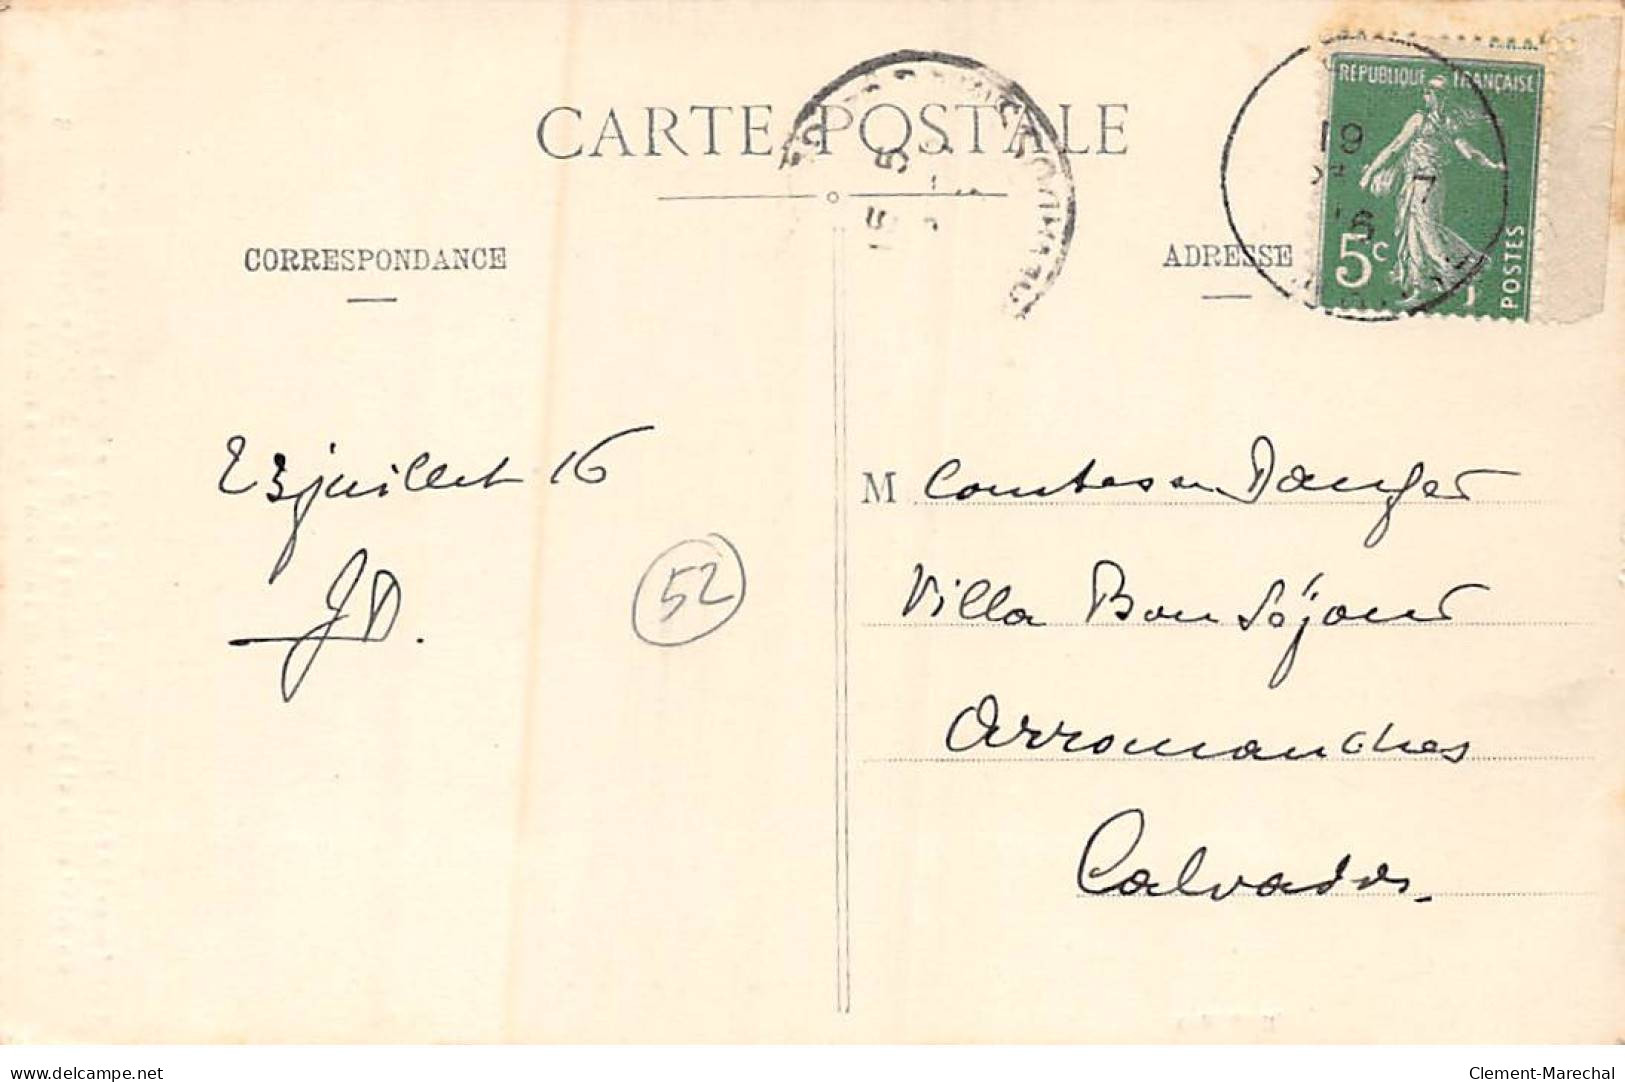 CARTE POSTALE
CORRESPONDANCE
ADRESSE
RÉPUBLIQUE FRANÇAISE
5c
POSTES
19
7
16
23 juillet 16
JD.
52
M Comtesse Danger
Villa Bon Séjour
Arromanches
Calvados
www.delcampe.net
Clement-Marechal